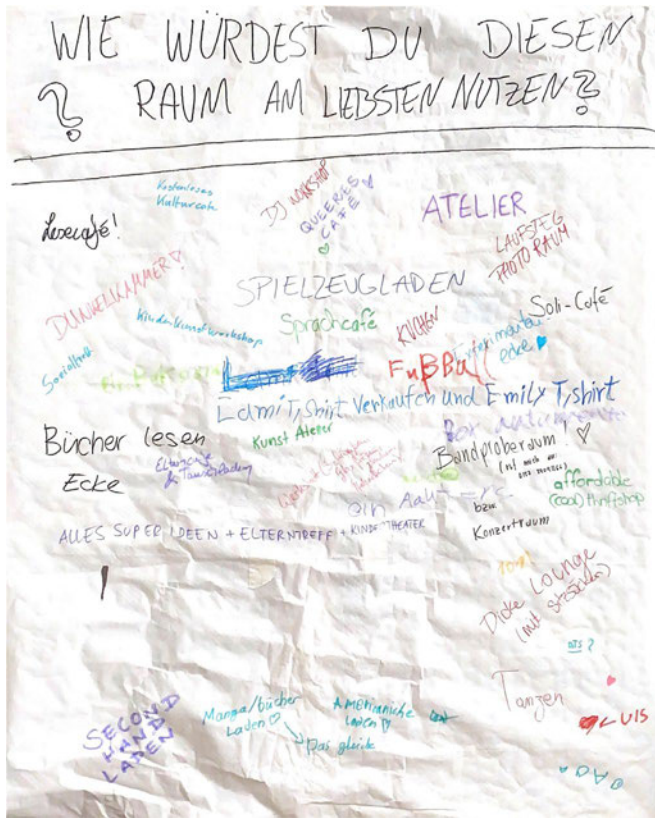 WIE WÜRDEST DU DIESEN
? RAUM AM LIEBSTEN NUTZEN?
Kostenloses
Kulturcafe
DJ WORKSHOP
QUEERES
CAFÉ
ATELIER
Lesecafé!
LAUFSTEG
PHOTO RAUM
DUNKELKAMMER!
SPIELZEUGLADEN
Soli-Café
Kinderkunstworkshop
Sprachcafé
KUCHEN
ecke
FußBall
LamiT,Shirt Verkaufen und Emily T,shirt
Bücher lesen
Ecke
Kunst Atelier
Elterncafe
& Tauschladen
Bandproberaum!
bzw.
Konzertraum
affordable
(cool) thriftshop
ein
ALLES SUPER IDEEN + ELTERNTREFF + KINDERTHEATER
Dicke Lounge
(mit Sitzsäcken)
BTS?
Tanzen
SECOND
HAND
LADEN
Manga/bücher
Laden
Das gleiche
LADEN